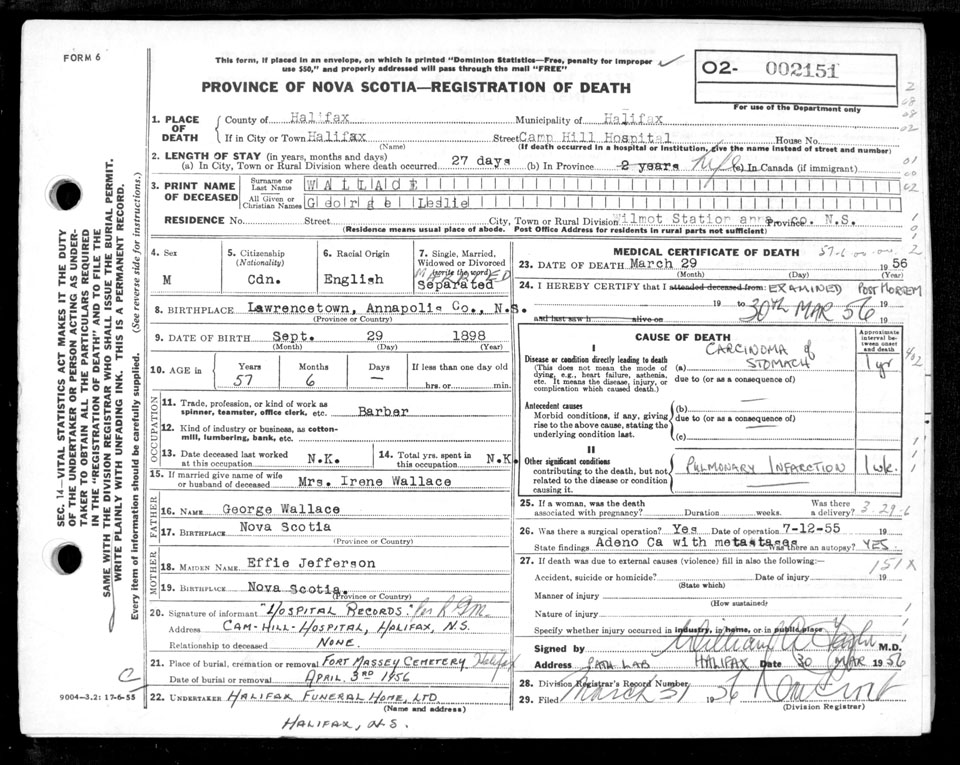 FORM 6
This form, if placed in an envelope, on which is printed "Dominion Statistics—Free, penalty for improper
use $50," and properly addressed will pass through the mail "FREE"
PROVINCE OF NOVA SCOTIA—REGISTRATION OF DEATH
02- 002151
For use of the Department only
1. PLACE OF DEATH
County of Halifax Municipality of Halifax
If in City or Town Halifax Street Camp Hill Hospital House No.
(Name) (If death occurred in a hospital or institution, give the name instead of street and number)
2. LENGTH OF STAY (in years, months and days)
(a) In City, Town or Rural Division where death occurred 27 days (b) In Province 2 years life (c) In Canada (if immigrant)
3. PRINT NAME OF DECEASED
Surname or Last Name WALLACE
All Given or Christian Names George Leslie
RESIDENCE No. Street City, Town or Rural Division Wilmot Station anna. co. N.S.
(Residence means usual place of abode. Post Office Address for residents in rural parts not sufficient)
4. Sex
M
5. Citizenship
(Nationality)
Cdn.
6. Racial Origin
English
7. Single, Married, Widowed or Divorced
(write the word)
MARRIED
Separated
8. BIRTHPLACE Lawrencetown, Annapolis Co., N.S.
(Province or Country)
9. DATE OF BIRTH Sept. 29 1898
(Month) (Day) (Year)
10. AGE in
Years Months Days If less than one day old
57 6 — hrs. or min.
OCCUPATION
11. Trade, profession, or kind of work as
spinner, teamster, office clerk, etc. Barber
12. Kind of industry or business, as cotton-
mill, lumbering, bank, etc.
13. Date deceased last worked
at this occupation N.K.
14. Total yrs. spent in
this occupation N.K.
15. If married give name of wife
or husband of deceased Mrs. Irene Wallace
FATHER
16. NAME George Wallace
17. BIRTHPLACE Nova Scotia
(Province or Country)
MOTHER
18. MAIDEN NAME Effie Jefferson
19. BIRTHPLACE Nova Scotia
(Province or Country)
20. Signature of informant "HOSPITAL RECORDS"
Address CAM-HILL-HOSPITAL, HALIFAX, N.S.
Relationship to deceased NONE.
21. Place of burial, cremation or removal FORT MASSEY CEMETERY Halifax
Date of burial or removal APRIL 3RD 1956
22. UNDERTAKER HALIFAX FUNERAL HOME, LTD.
(Name and address)
HALIFAX, N.S.
MEDICAL CERTIFICATE OF DEATH
23. DATE OF DEATH March 29 1956
(Month) (Day) (Year)
24. I HEREBY CERTIFY that I attended deceased from: EXAMINED POST MORTEM
19 to 30TH MAR 56 19
and last saw h alive on 19
CAUSE OF DEATH
Approximate interval between onset and death
I
Disease or condition directly leading to death
(This does not mean the mode of
dying, e.g., heart failure, asthenia,
etc. It means the disease, injury, or
complication which caused death.)
(a) CARCINOMA of STOMACH 1 yr
due to (or as a consequence of)
Antecedent causes
Morbid conditions, if any, giving
rise to the above cause, stating the
underlying condition last.
(b)
due to (or as a consequence of)
(c)
II
Other significant conditions
contributing to the death, but not
related to the disease or condition
causing it.
PULMONARY INFARCTION 1 wk.
25. If a woman, was the death
associated with pregnancy? Duration weeks. Was there a delivery? 3-29-6
26. Was there a surgical operation? Yes Date of operation 7-12-55 19
State findings Adeno Ca with metastases Was there an autopsy? YES
27. If death was due to external causes (violence) fill in also the following: 151X
Accident, suicide or homicide? Date of injury 19
(State which)
Manner of injury
(How sustained)
Nature of injury
Specify whether injury occurred in industry, in home, or in public place
Signed by William A Taylor M.D.
Address PATH LAB HALIFAX Date 30 MAR 1956
28. Division Registrar's Record Number
29. Filed March 31 1956
(Division Registrar)
SEC. 14—VITAL STATISTICS ACT MAKES IT THE DUTY
OF THE UNDERTAKER OR PERSON ACTING AS UNDER-
TAKER TO OBTAIN ALL THE PARTICULARS REQUIRED
IN THE "REGISTRATION OF DEATH" AND TO FILE THE
SAME WITH THE DIVISION REGISTRAR WHO SHALL ISSUE THE BURIAL PERMIT.
WRITE PLAINLY WITH UNFADING INK. THIS IS A PERMANENT RECORD.
Every item of information should be carefully supplied. (See reverse side for instructions.)
C
9004-3.2: 17-6-55